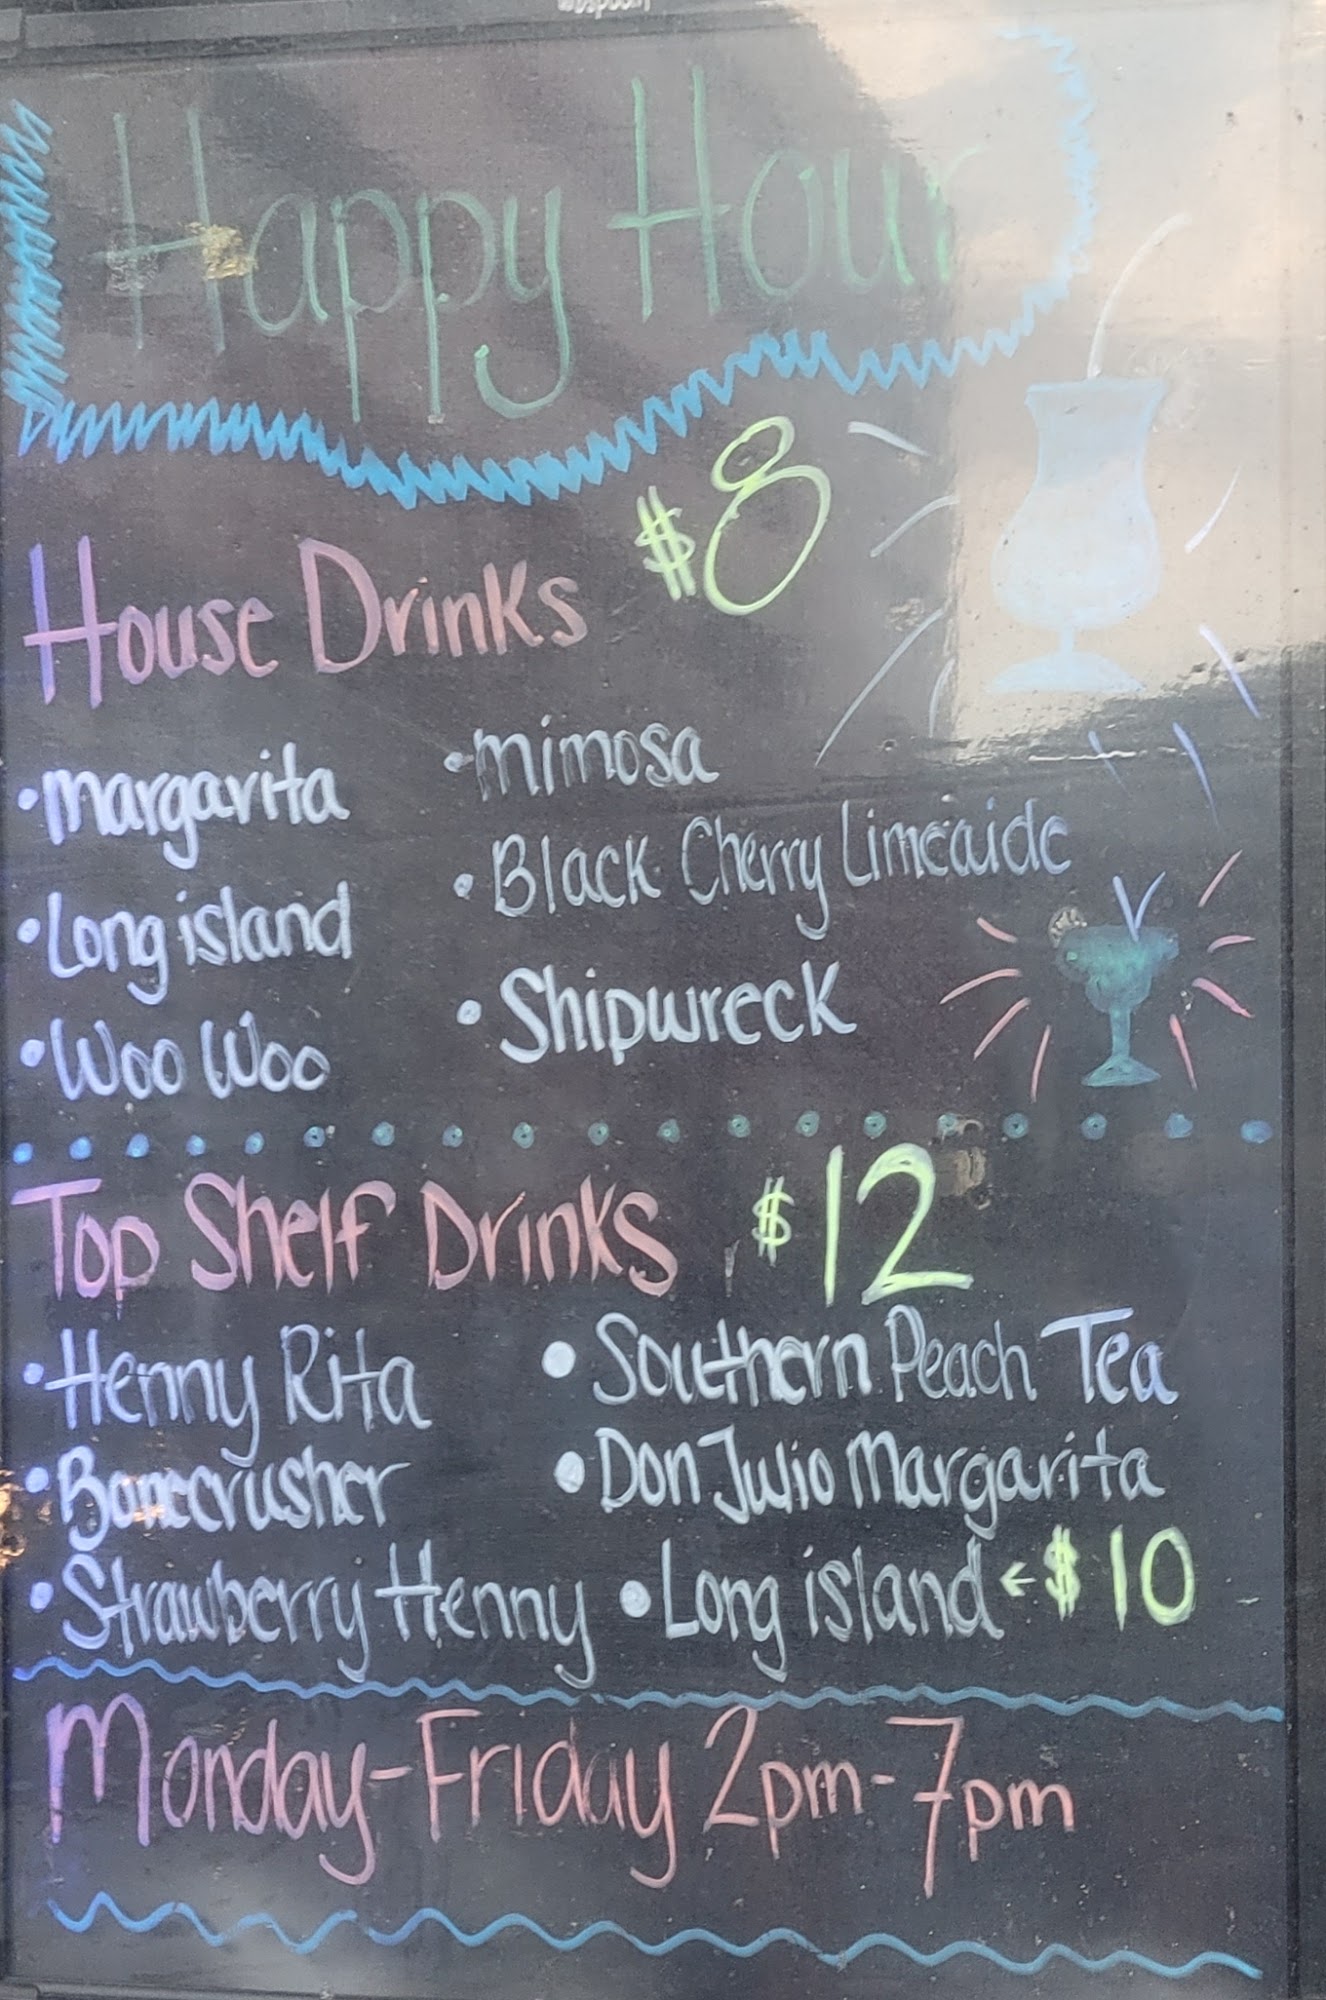 Happy Hour
House Drinks $8
•Margarita
•Long island
•Woo Woo
•Mimosa
•Black Cherry Limeaide
•Shipwreck
Top Shelf Drinks $12
•Henny Rita
•Bonecrusher
•Strawberry Henny
•Southern Peach Tea
•Don Julio Margarita
•Long island ← $10
Monday-Friday 2pm-7pm